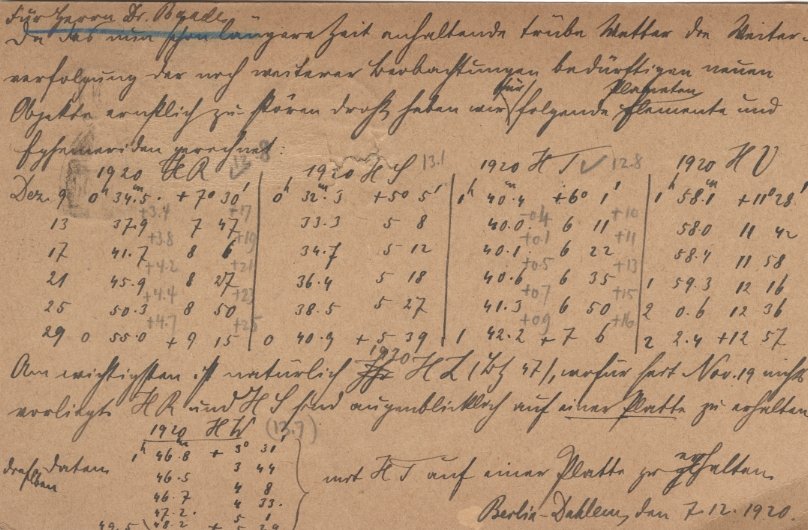 Für Herrn Dr. Baade
Da das nun schon längere Zeit anhaltende trübe Wetter die Weiter-
verfolgung der noch weiterer Beobachtungen bedürftigen neuen
Objekte ernstlich zu stören droht, haben wir für folgende Planeten Elemente und
Ephemeriden gerechnet:
1920 HR 12.8 1920 HS 13.1 1920 HT 12.8 1920 HU
Dez. 9 0h 34.5m +7° 30' 0h 32m.3 +5° 5' 1h 40m.4 +6° 1' 1h 58m.1 +11° 28'
+3.4 +17 -0.4 +10
13 37.9 7 47 33.3 5 8 40.0 6 11 58.0 11 42
+3.8 +19 +0.1 +11
17 41.7 8 6 34.7 5 12 40.1 6 22 58.4 11 58
+4.2 +21 +0.5 +13
21 45.9 8 27 36.4 5 18 40.6 6 35 1 59.3 12 16
+4.4 +23 +0.7 +15
25 50.3 8 50 38.5 5 27 41.3 6 50 2 0.6 12 36
+4.7 +25 +0.9 +16
29 0 55.0 +9 15 0 40.9 +5 39 1 42.2 +7 6 2 2.4 +12 57
Am wichtigsten ist natürlich 1920 HZ (BZ 47), wofür seit Nov. 19 nichts
vorliegt. HR und HS sind augenblicklich auf einer Platte zu erhalten
1920 HW (13.7)
dieselben Daten 1h 46m.8 +3° 31'
46.5 3 44
46.7 4 8
47.2 4 33
48.2 + 5 29
49.5
mit HT auf einer Platte zu erhalten
Berlin-Dahlem, den 7.12.1920.